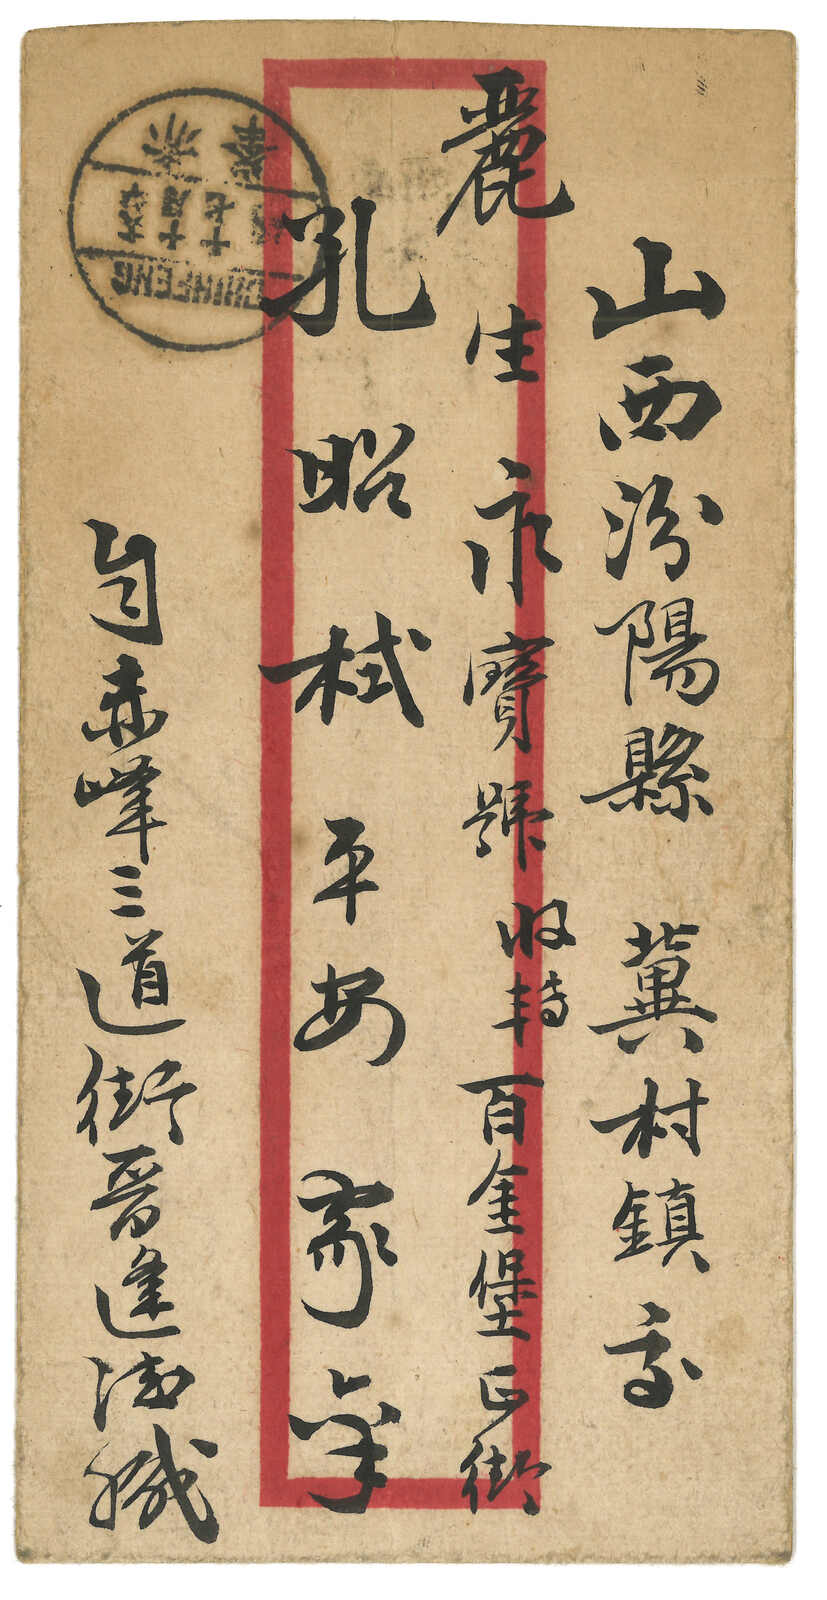 山西汾陽縣 冀村鎮交
麗生永寶號收轉百金堡正街
孔昭栻平安家
自赤峰三道街晋逢德緘
赤峯
CHIHFENG